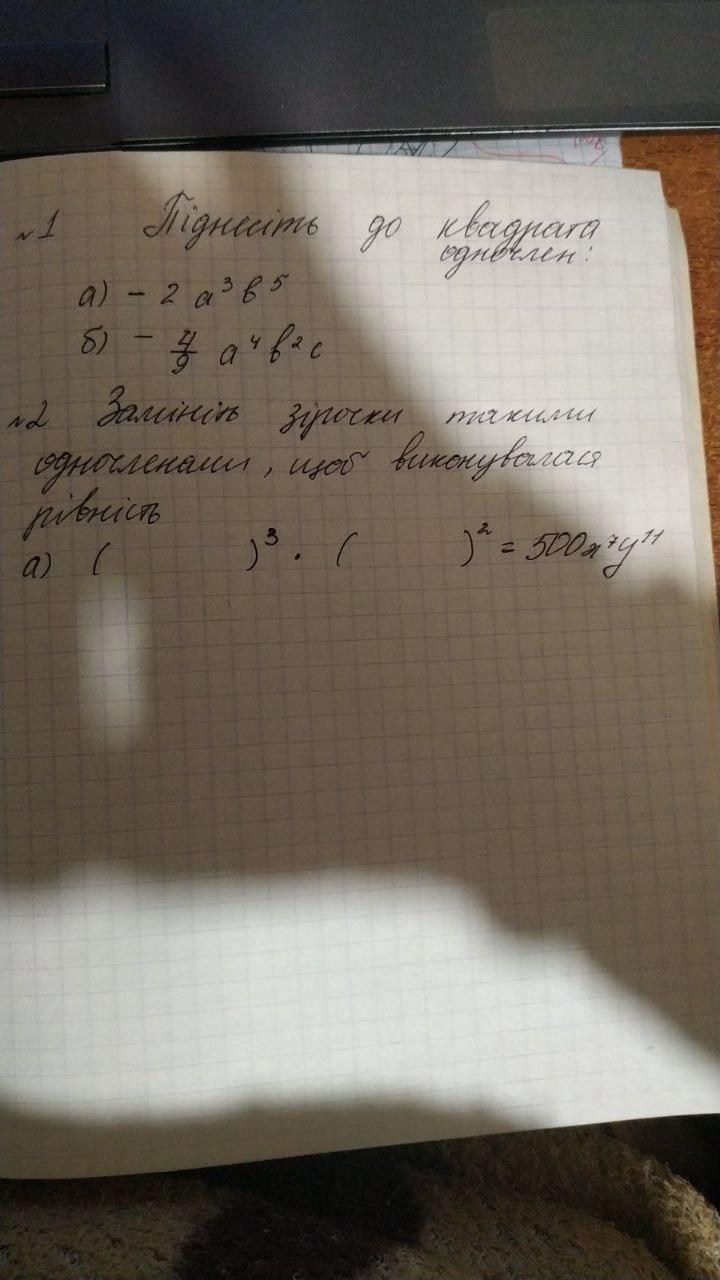 №1 Піднесіть до квадрата
одночлен:
а) - 2 a³b⁵
б) - 4/9 a⁴b²c
№2 Замініть зірочки такими
одночленами, щоб виконувалася
рівність
а) ( )³ · ( )² = 500x⁷y¹¹